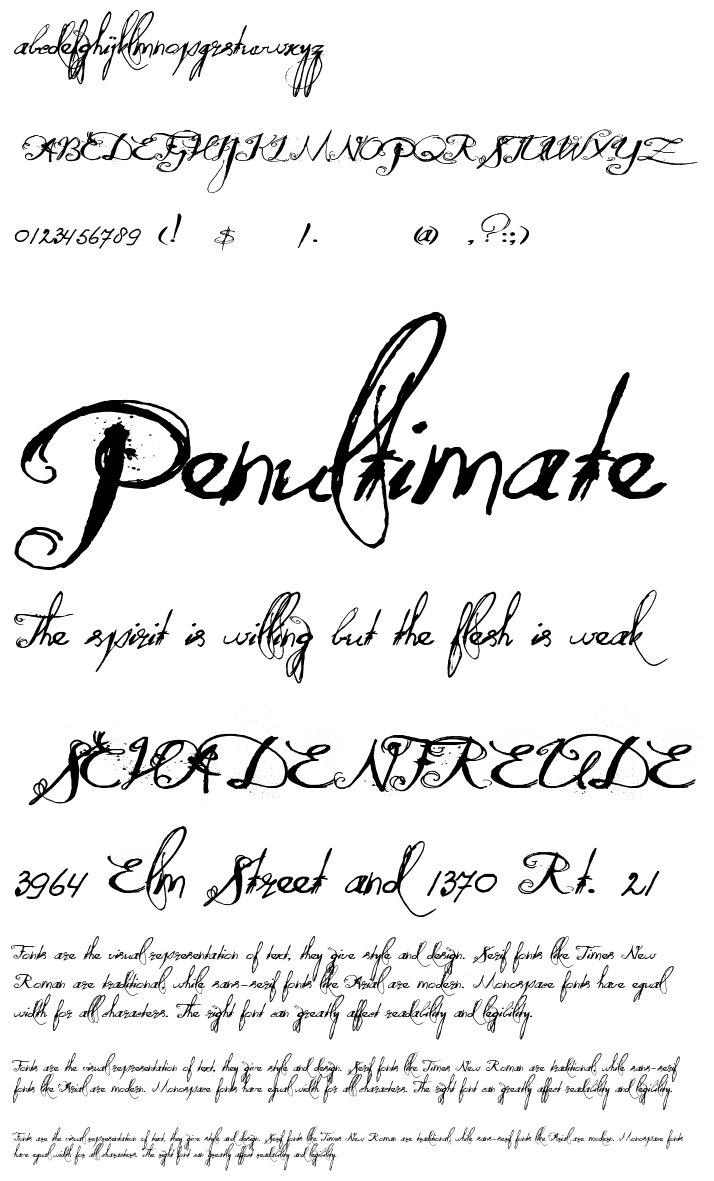 abcdefghijklmnopqrstuvwxyz
ABCDEFGHIJKLMNOPQRSTUVWXYZ
0123456789 (! $ /. @ ,?:;)
Penultimate
The spirit is willing but the flesh is weak
SCHADENFREUDE
3964 Elm Street and 1370 Rt. 21
Fonts are the visual representation of text, they give style and design. Serif fonts like Times New
Roman are traditional, while sans-serif fonts like Arial are modern. Monospace fonts have equal
width for all characters. The right font can greatly affect readability and legibility.
Fonts are the visual representation of text, they give style and design. Serif fonts like Times New Roman are traditional, while sans-serif
fonts like Arial are modern. Monospace fonts have equal width for all characters. The right font can greatly affect readability and legibility.
Fonts are the visual representation of text, they give style and design. Serif fonts like Times New Roman are traditional, while sans-serif fonts like Arial are modern. Monospace fonts
have equal width for all characters. The right font can greatly affect readability and legibility.